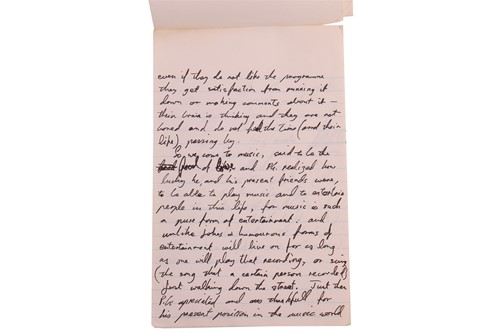 even if they do not like the programme
they get satisfaction from running it
down or making comments about it –
their brain is thinking and they are not
bored and do not feel the time (and their
life) passing by.
So we come to music, said to be the
food of love and P.G. realized how
lucky he, and his present friends were,
to be able to play music and to entertain
people in this life, for music is such
a pure form of entertainment; and
unlike jokes & humourous forms of
entertainment will live on for as long
as one will play that recording, or sing
(the song that a certain person recorded)
just walking down the street. Just then
P.G. apreciated and was thankfull for
his present position in the music world